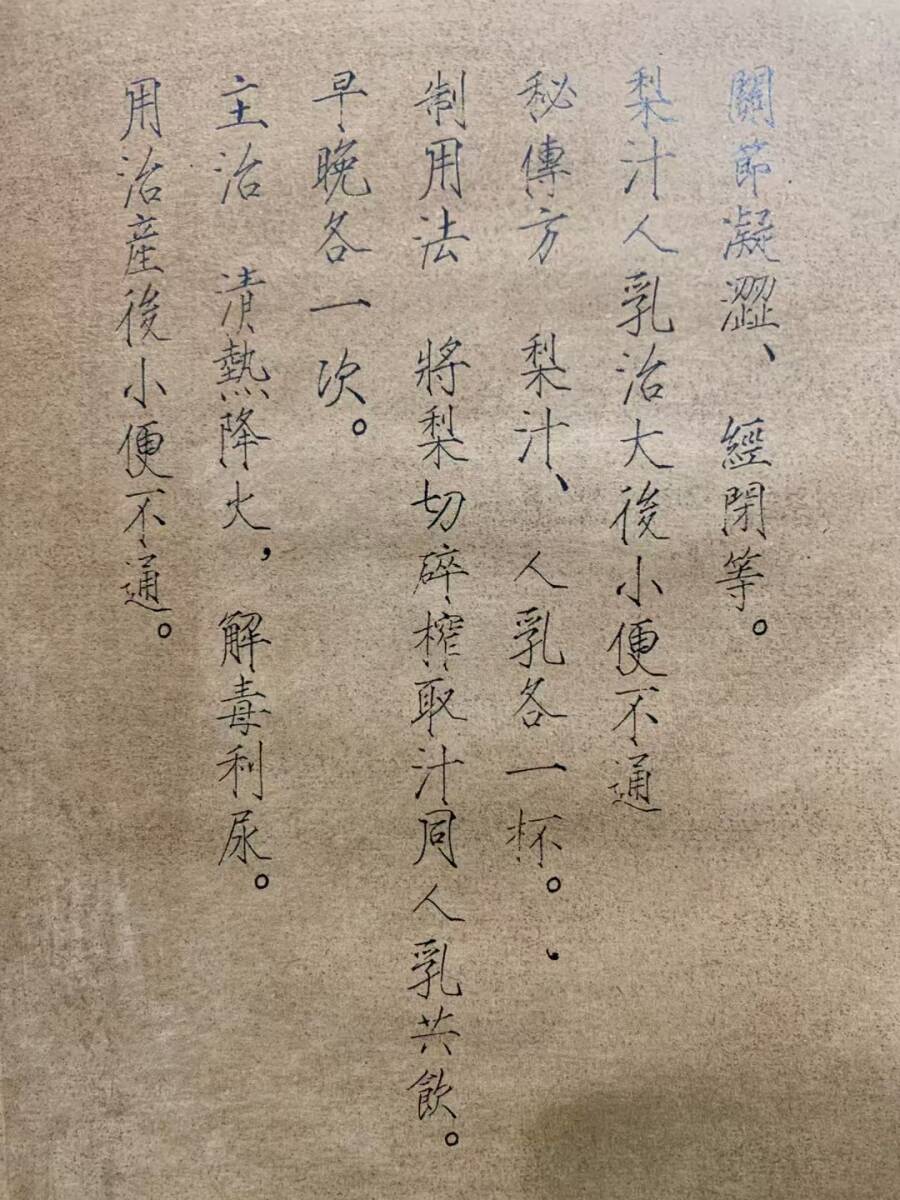 關節凝澀、經閉等。
梨汁人乳治大後小便不通
秘傳方 梨汁、人乳各一杯。
制用法 將梨切碎榨取汁同人乳共飲。
早晚各一次。
主治 清熱降火，解毒利尿。
用治產後小便不通。